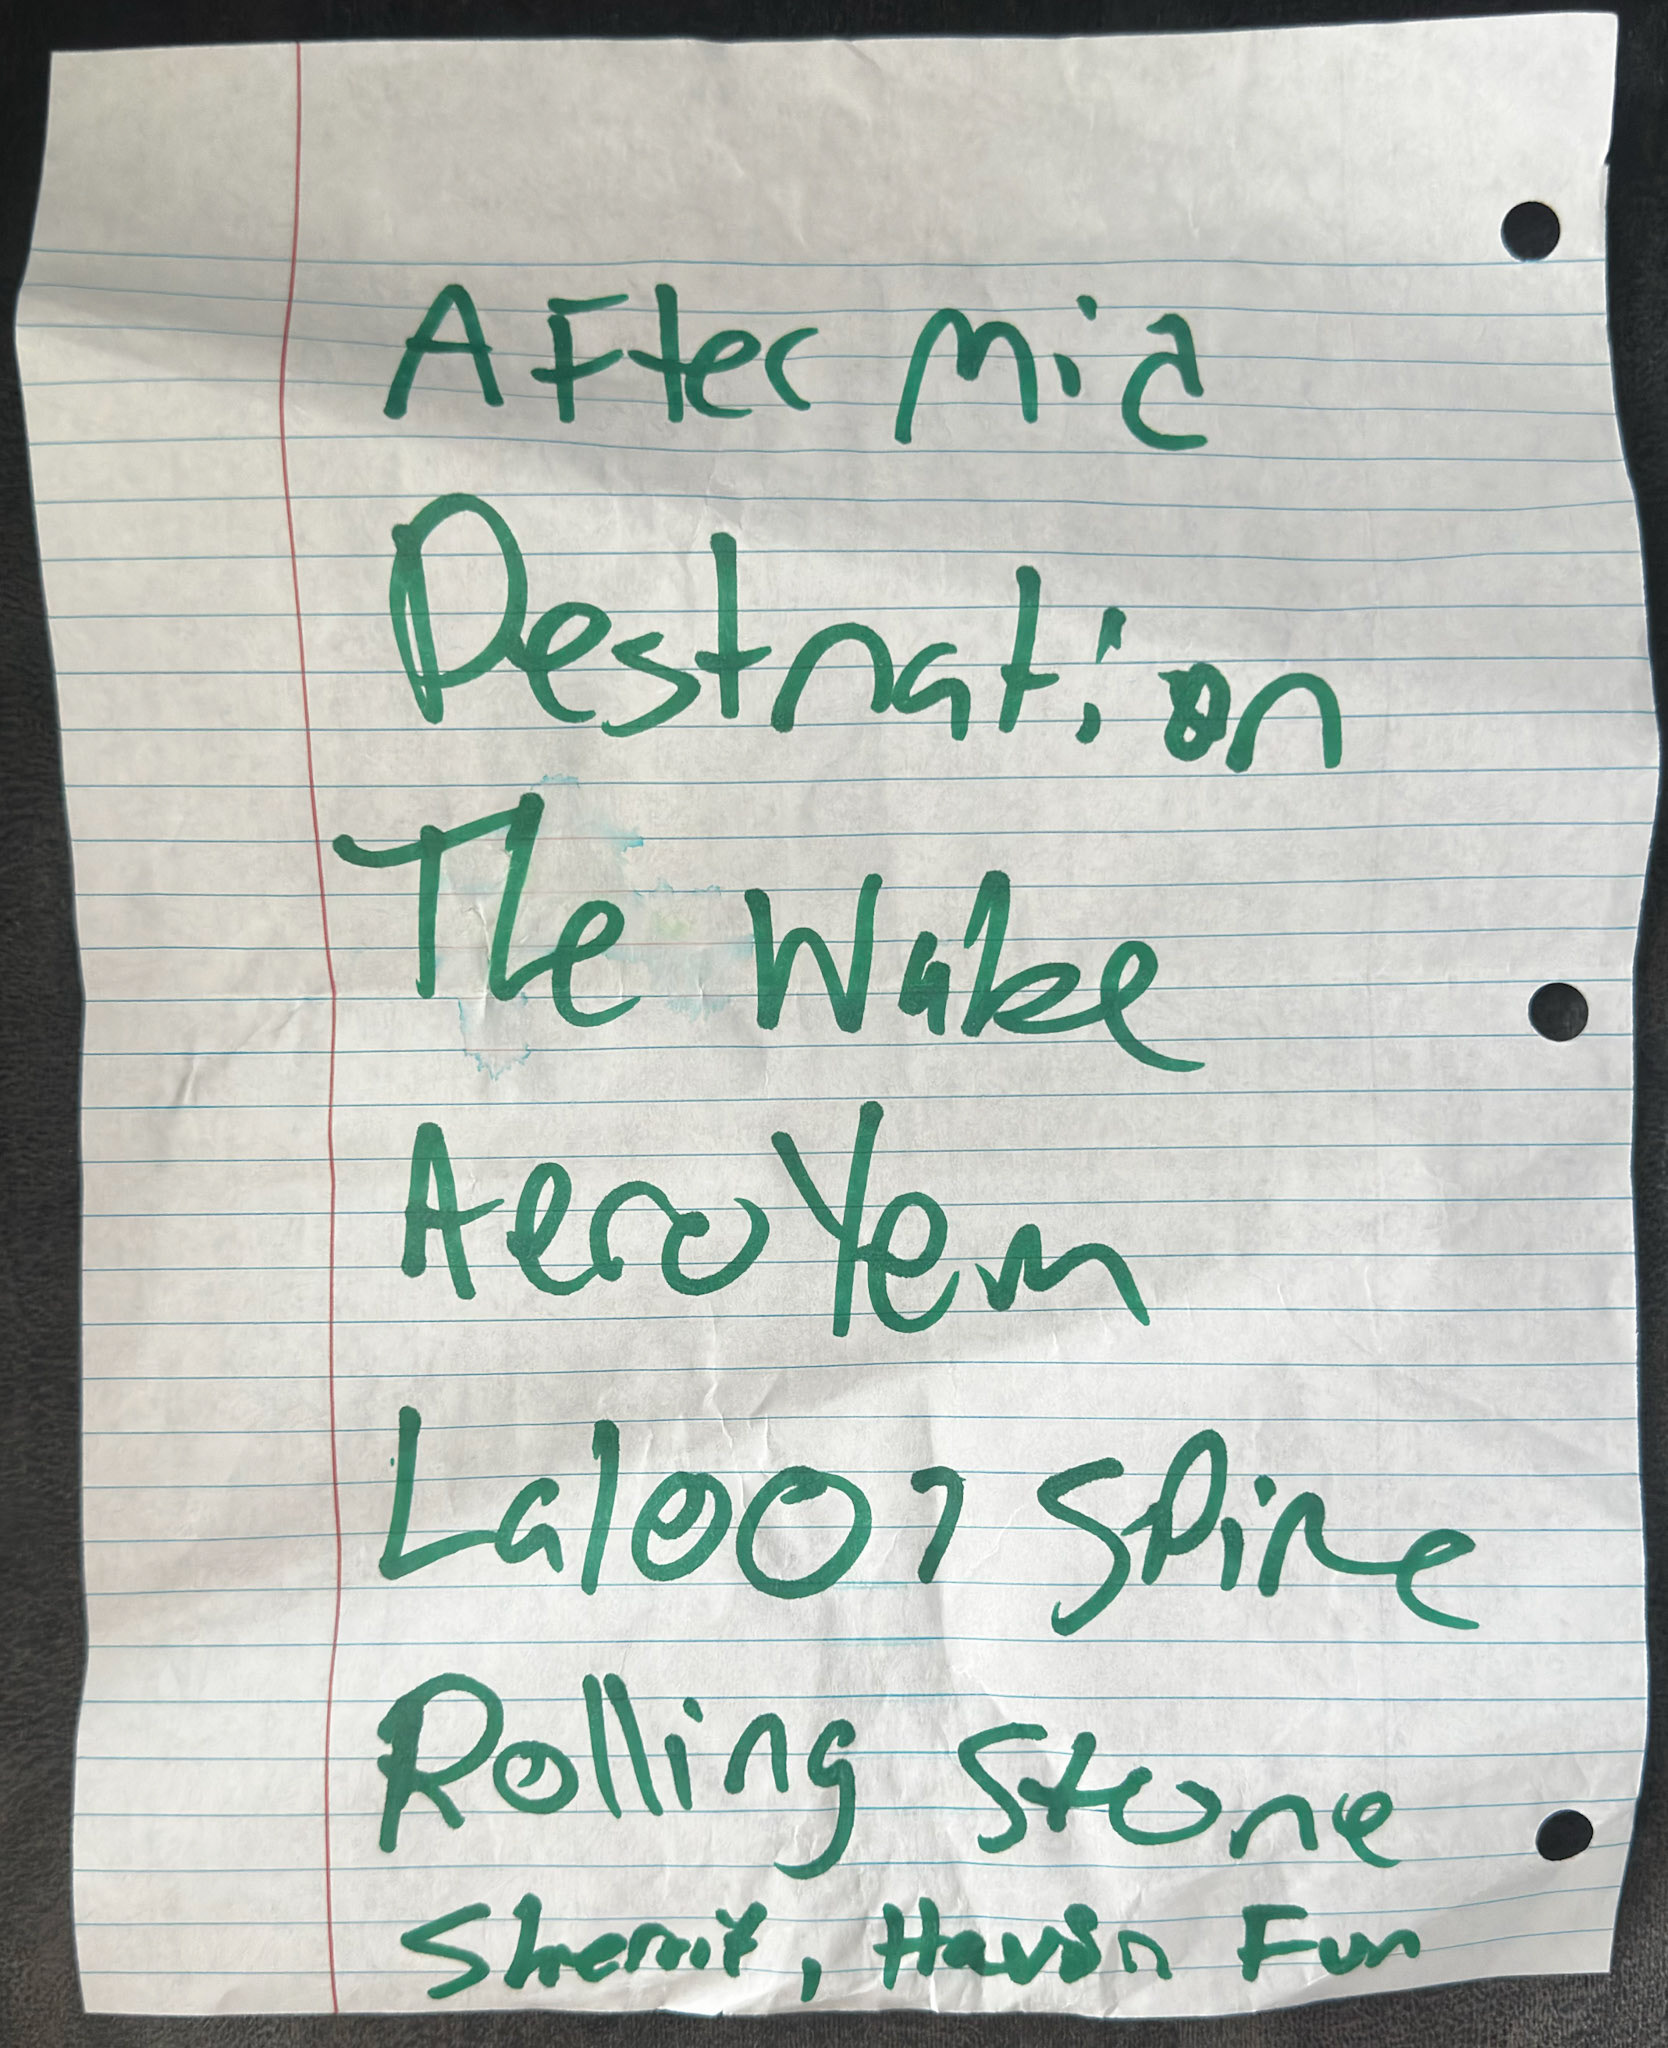 After Mid
Destnation
The Wake
Aero Yem
Laloo, Spine
Rolling Stone
Sherrif, Havin Fun